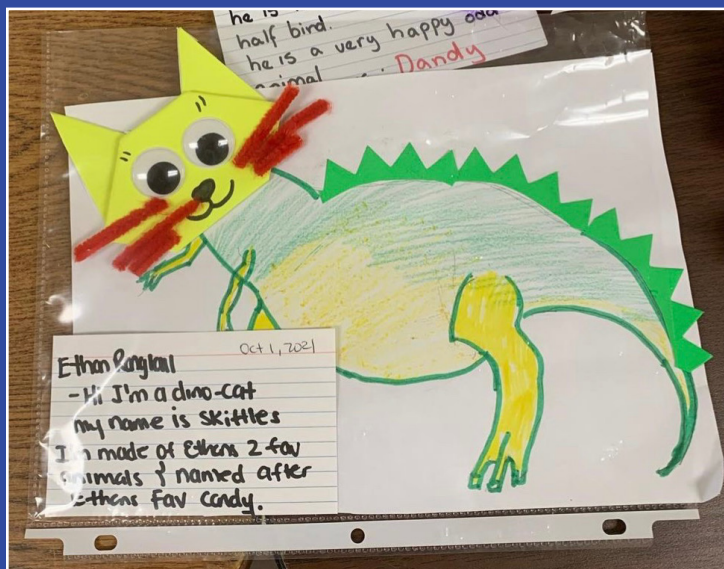 he is
half bird.
he is a very happy odd
animal
Dandy
Oct 1, 2021
Ethan
-Hi I'm a dino-cat
my name is skittles
I'm made of Ethans 2 fav
animals & named after
Ethans fav candy.